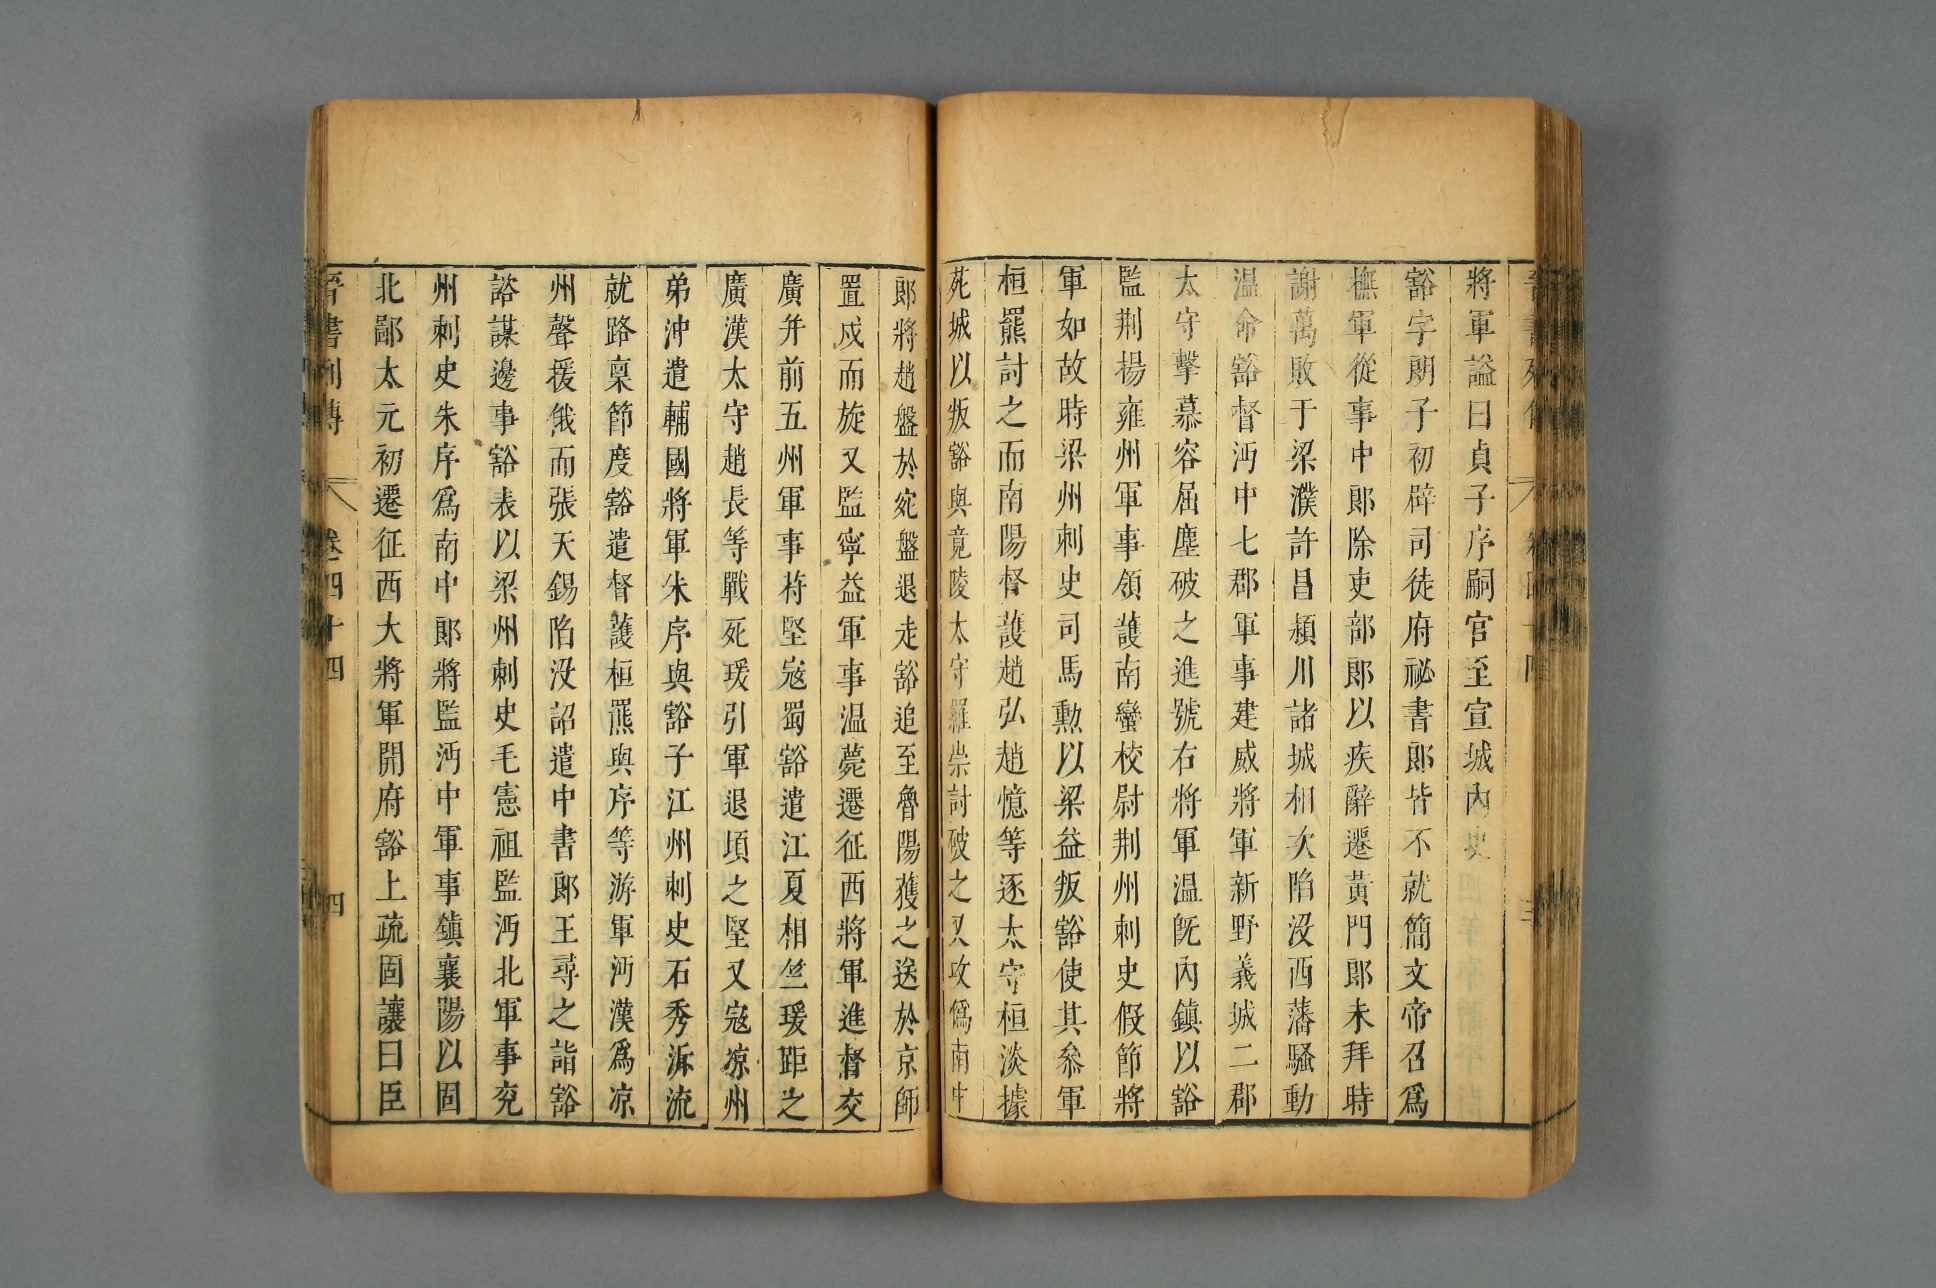 將軍謚曰貞子序嗣官至宣城內史
豁字朗子初辟司徒府祕書郎皆不就簡文帝召爲
撫軍從事中郎除吏部郎以疾辭遷黃門郎未拜時
謝萬敗于梁濮許昌潁川諸城相次陷没西藩騷動
温命豁督沔中七郡軍事建威將軍新野義城二郡
太守擊慕容屈塵破之進號右將軍温既內鎮以豁
監荆揚雍州軍事領護南蠻校尉荆州刺史假節將
軍如故時梁州刺史司馬勲以梁益叛豁使其叅軍
桓羆討之而南陽督護趙弘趙憶等逐太守桓淡據
苑城以叛豁與竟陵太守羅崇討破之又攻僞南中
郎將趙盤於宛盤退走豁追至魯陽獲之送於京師
置戍而旋又監寧益軍事温薨遷征西將軍進督交
廣并前五州軍事苻堅寇蜀豁遣江夏相竺瑗距之
廣漢太守趙長等戰死瑗引軍退頃之堅又寇凉州
弟沖遣輔國將軍朱序與豁子江州刺史石秀泝流
就路稟節度豁遣督護桓羆與序等游軍沔漢爲凉
州聲援俄而張天錫陷没詔遣中書郎王尋之詣豁
諮謀邊事豁表以梁州刺史毛憲祖監沔北軍事兖
州刺史朱序爲南中郎將監沔中軍事鎮襄陽以固
北鄙太元初遷征西大將軍開府豁上疏固讓曰臣
晉書列傳 卷四十四 四